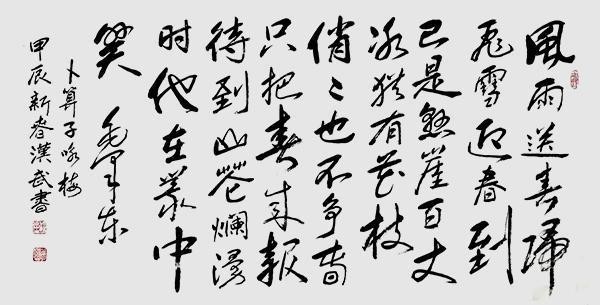 風雨送春歸
飛雪迎春到
已是懸崖百丈
冰猶有花枝
俏〻也不争春
只把春来報
待到山花爛漫
时代在叢中
笑 毛泽东
卜算子咏梅
甲辰新春漢武書